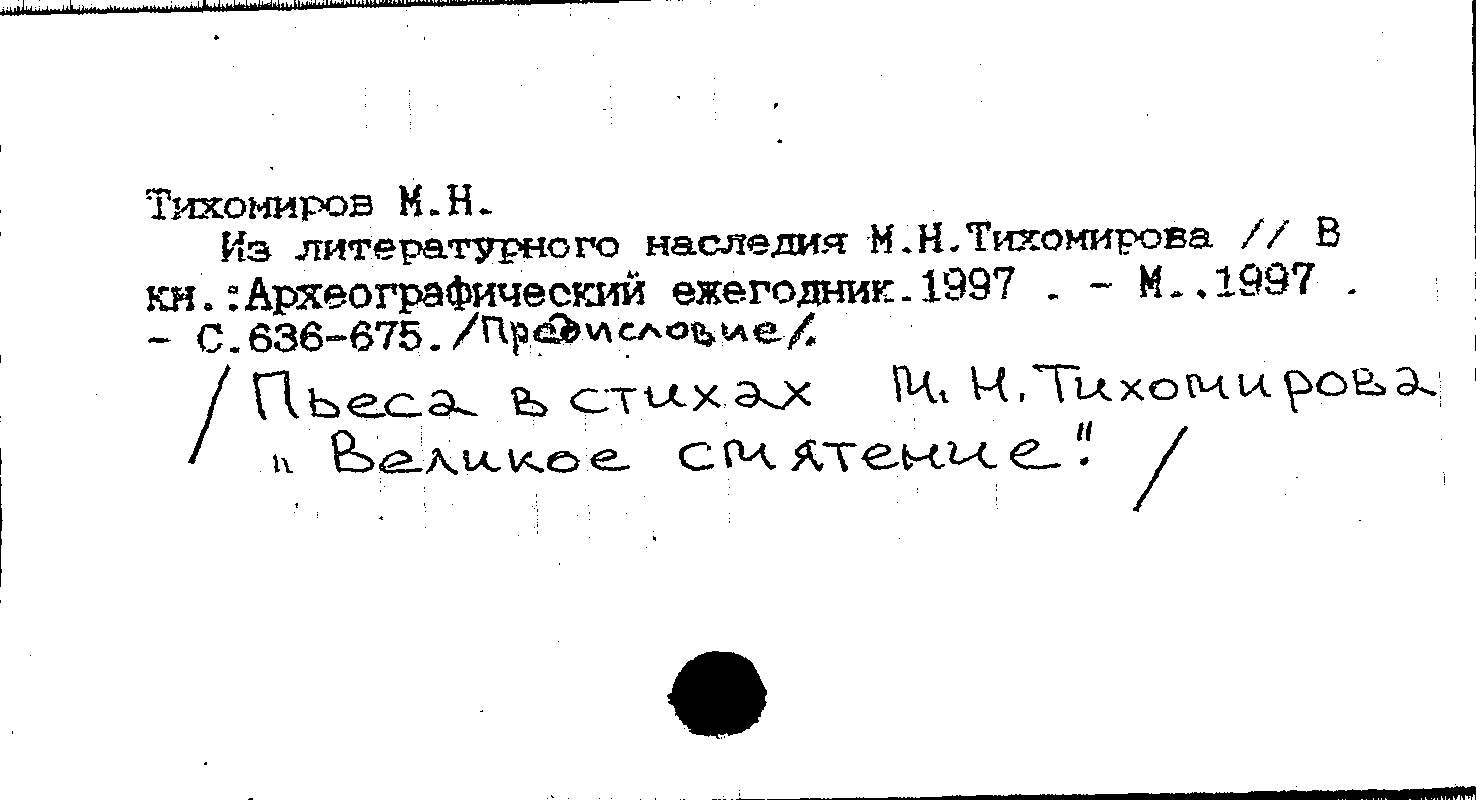 Тихомиров М.Н.
Из литературного наследия М.Н.Тихомирова // В
кн.:Археографический ежегодник.1997 . - М..1997 .
- С.636-675./Предисловие/.
/ Пьеса в стихах М.Н.Тихомирова
„Великое смятение". /